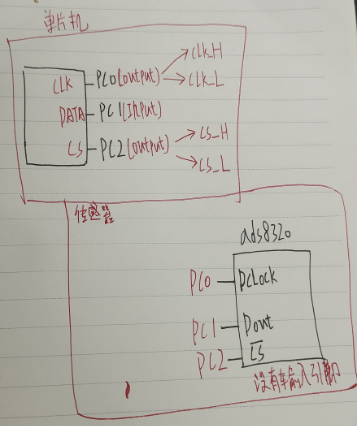 单片机
CLK PC0(output) CLK_H
CLK_L
DATA PC1(Input)
CS PC2(output) CS_H
CS_L
传感器
ads8320
PC0 DCLock
PC1 Dout
PC2 CS
没有输入引脚